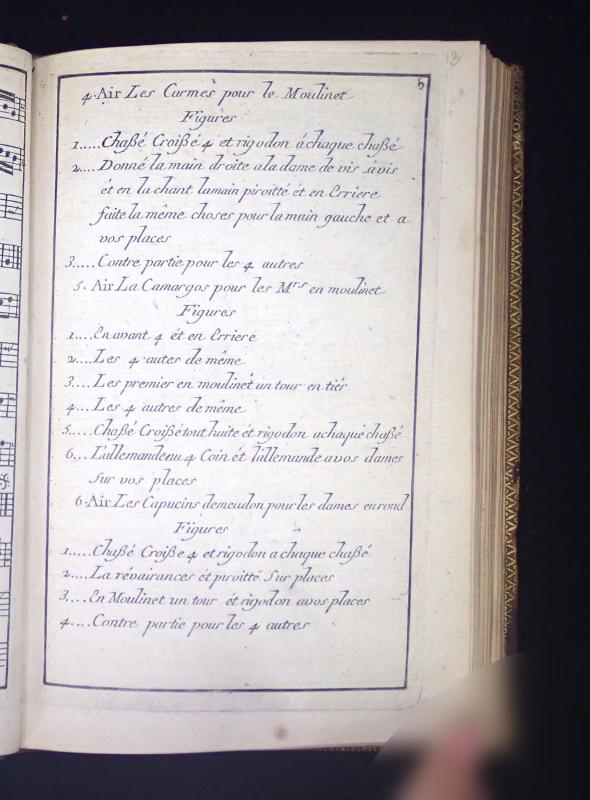 5
4. Air Les Carmes pour le Moulinet
Figures
1..... Chaßé Croißé 4 et rigodon á chaque chaßé
2..... Donné la main droite ala dame de vis ávis
ét en la chant lamain piroitté ét en Erriere
faite la même choses pour la main gauche et a
vos places
3..... Contre partie pour les 4 autres
5. Air La Camargos pour les Mrs en moulinet
Figures
1.... En avant 4 ét en Erriere
2.... Les 4 autes de même
3.... Les premier en moulinet un tour en tiér
4.... Les 4 autres de même
5.... Chaßé Croißé tout huite ét rigodon achaque chaßé
6... L'allemande au 4 Coin ét l'allemande avos dames
Sur vos places
6. Air Les Capucins demeudon pour les dames en rond
Figures
1.... Chaßé Croiße 4 et rigodon a chaque chaßé
2.... La révairances ét piroitté Sur places
3.... En Moulinet un tour ét rigodon avos places
4.... Contre partie pour les 4 autres